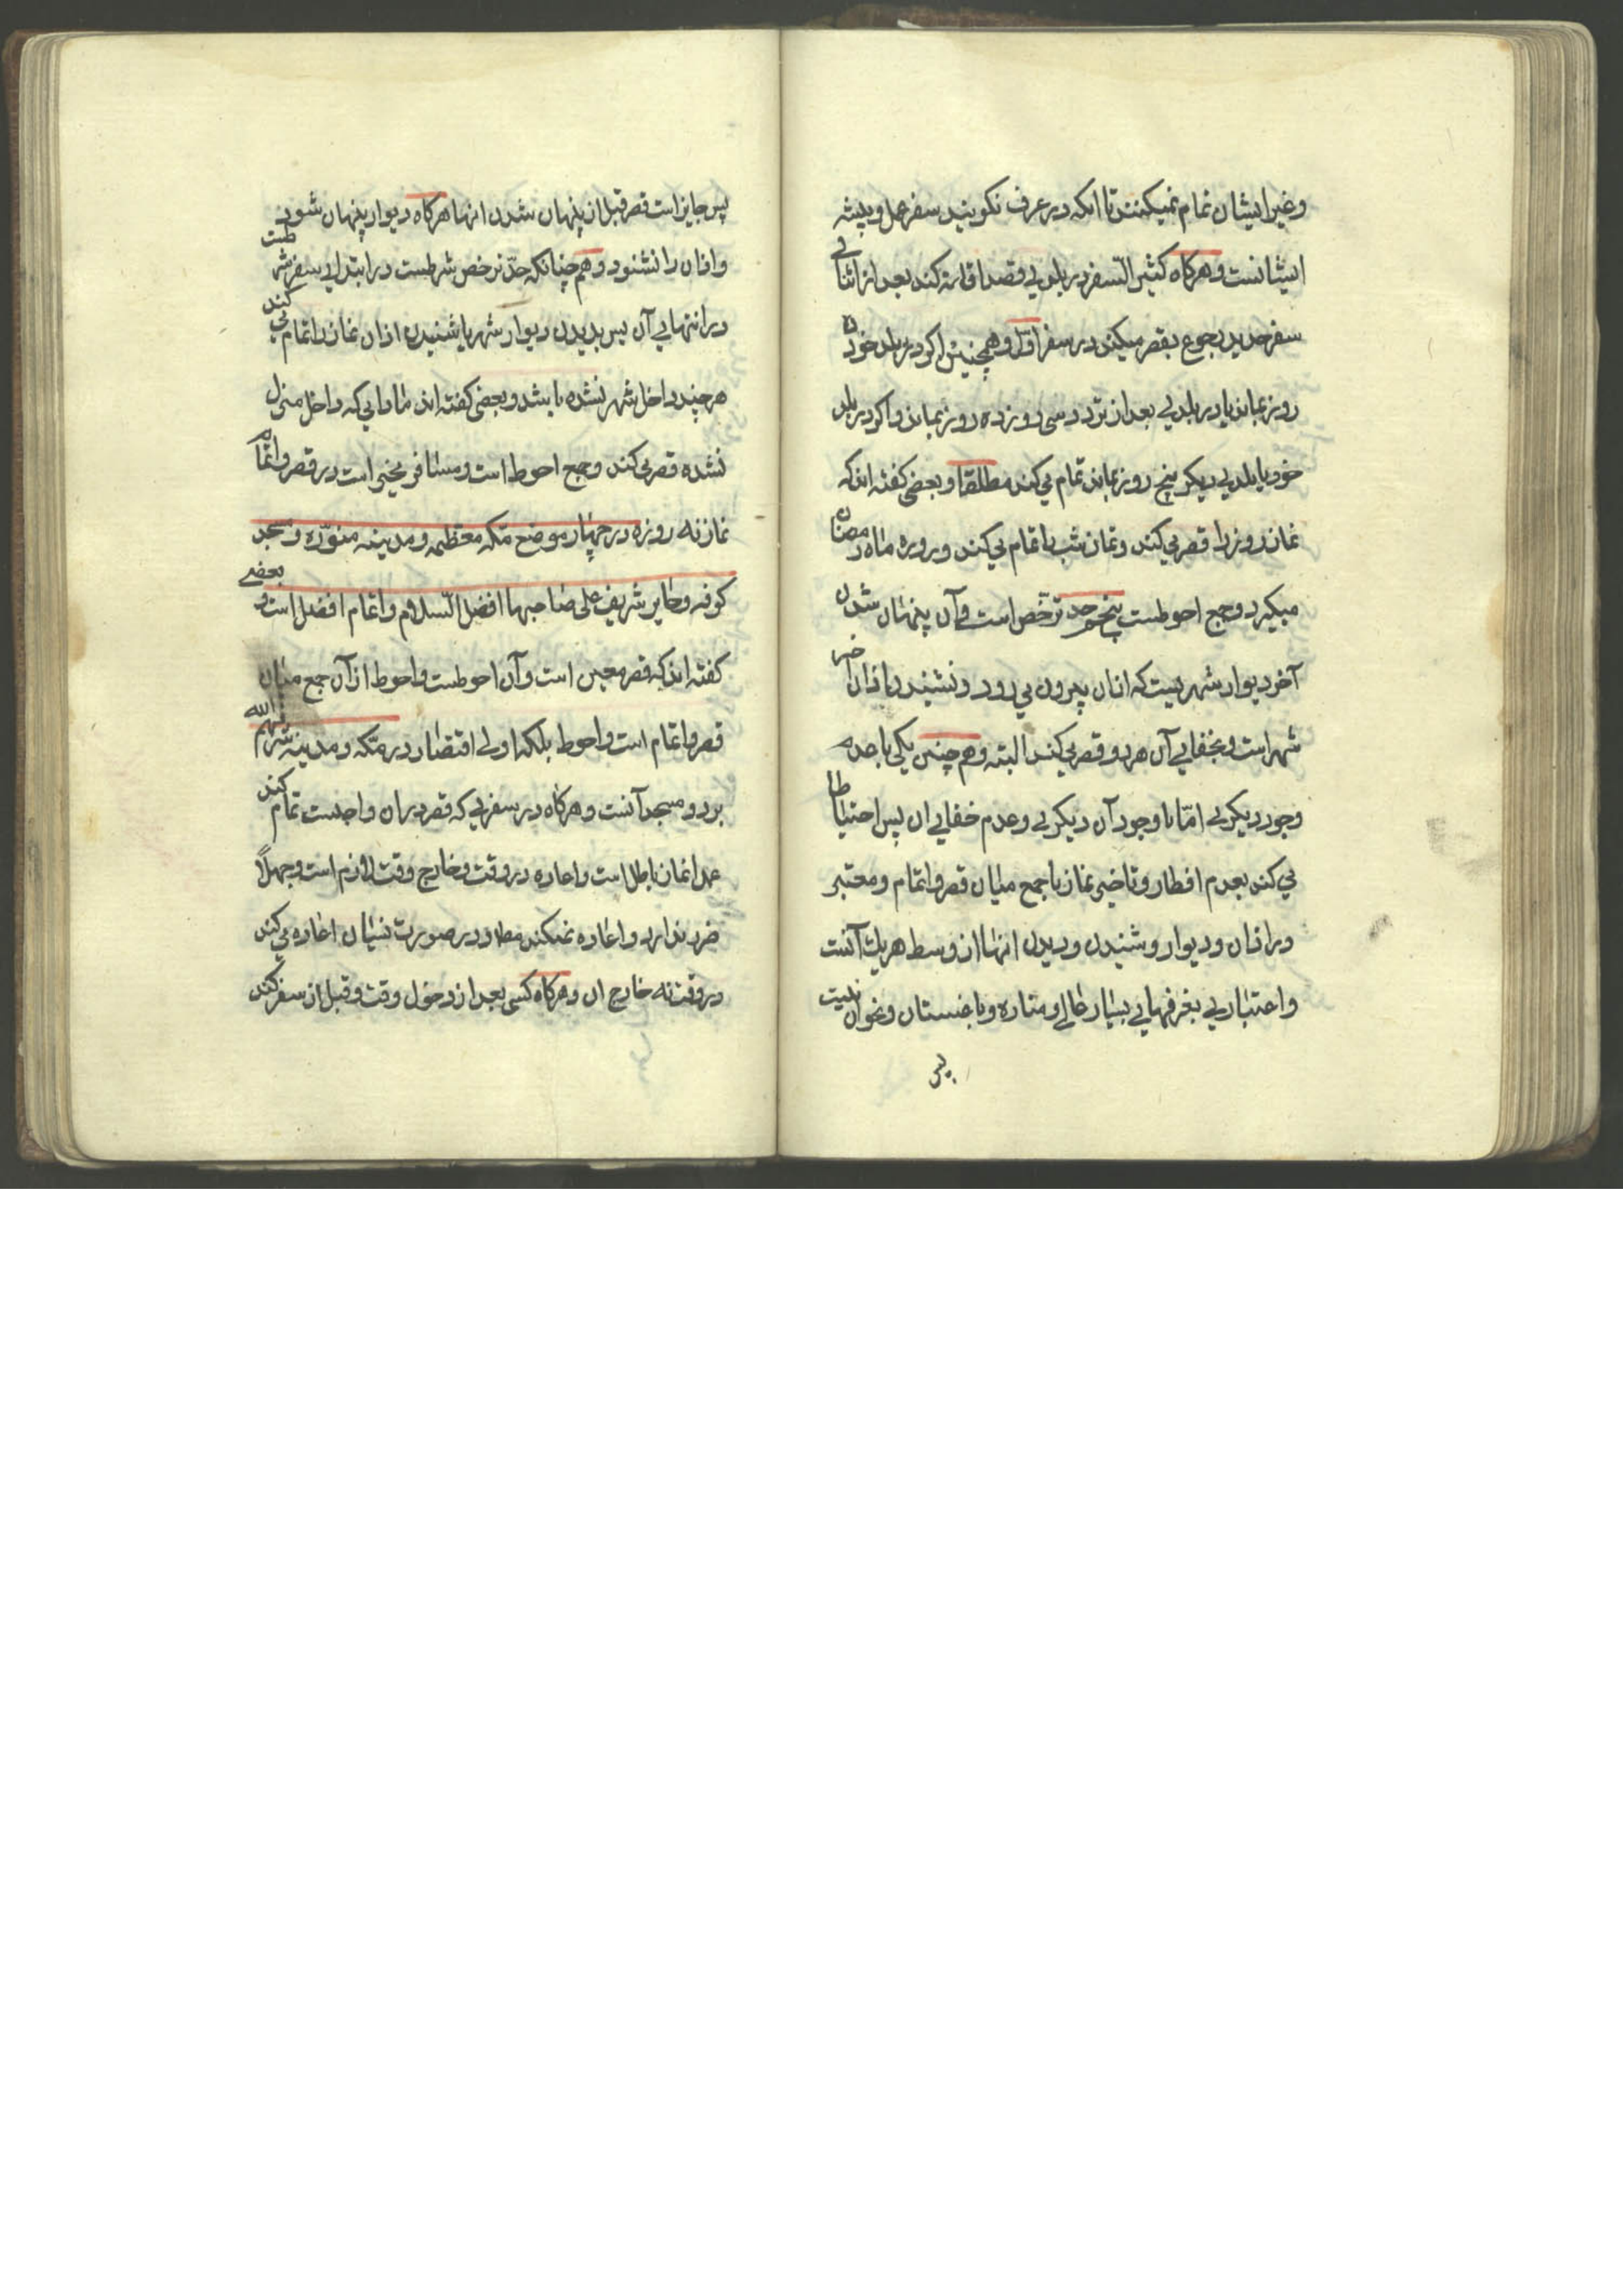 وغیر ایشان تمام نمیکنند تا انکه در عرف نکویند سفر عمل و پیشه
ایشانست و هرکاه کثیر السفر در بلدی قصد اقامه کند بعد از اثنای
سفر جدید رجوع بقصر میکند در سفر اول و همچنین اکر در بلد خود ده
روز بماند یا در بلدی بعد از تردد سی روز ده روز بماند و اکر در بلد
خود یا بلدی دیکر پنج روز بماند تمام می کند مطلقا و بعضی کفته اند که
نماز روز را قصر می کند و نماز شب را تمام می کند و روزه ماه رمضان
میکیرد و جمع احوطست پنجم حد ترخص است و آن پنهان شدن
آخر دیوار شهریست که از ان بیرون می رود و نشنیدن اذان آخر
شهر است و بخفای آن هر دو قصر می کند البته و هم چنین یکی با عدم
وجود دیکری امّا با وجود آن دیکری و عدم خفای ان پس احتیاط
می کند بعدم افطار و تاخیر نماز یا جمع میان قصر و اتمام و معتبر
در اذان و دیوار و شنیدن و دیدن انها از وسط هریک آنست
و اعتباری بغرفهای بسیار عالی و مناره و باغستان و نحو ان نیست
پس
پس جایز است قصر قبل از پنهان شدن انها هرکاه دیوار پنهان شود
و اذان را نشنود و هم چنانکه حدّ ترخص شرطست در ابتدای سفر شرطست
در انتهای آن پس بدیدن دیوار شهر یا شنیدن اذان نماز را تمام می کند
هرچند داخل شهر نشده باشد و بعضی کفته اند مادامی که داخل منزل
نشده قصر می کند و جمع احوط است و مسافر مخیر است در قصر و اتمام
نماز نه روزه در چهار موضع مکه معظمه و مدینه منوّره و مسجد
کوفه و حایر شریف علی صاحبها افضل السلام و اتمام افضل است و بعضی
کفته اند که قصر معین است و آن احوطست و احوط از آن جمع میان
قصر و اتمام است و احوط بلکه اولی اقتصار در مکه و مدینه شرفهم الله
بر دو مسجد آنست و هرکاه در سفری که قصر در ان واجبست تمام کند
عمدا نماز باطل است و اعاده در وقت و خارج وقت لازم است و جهلاً
ضرر ندارد و اعاده نمیکند مطلقا و در صورت نسیان اعاده می کند
در وقت نه خارج ان و هرکاه کسی بعد از دخول وقت و قبل از سفر کند